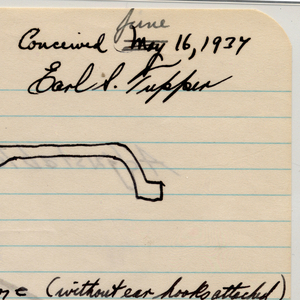 June
Conceived May 16, 1937
Earl S. Tupper
(without ear hooks attached)